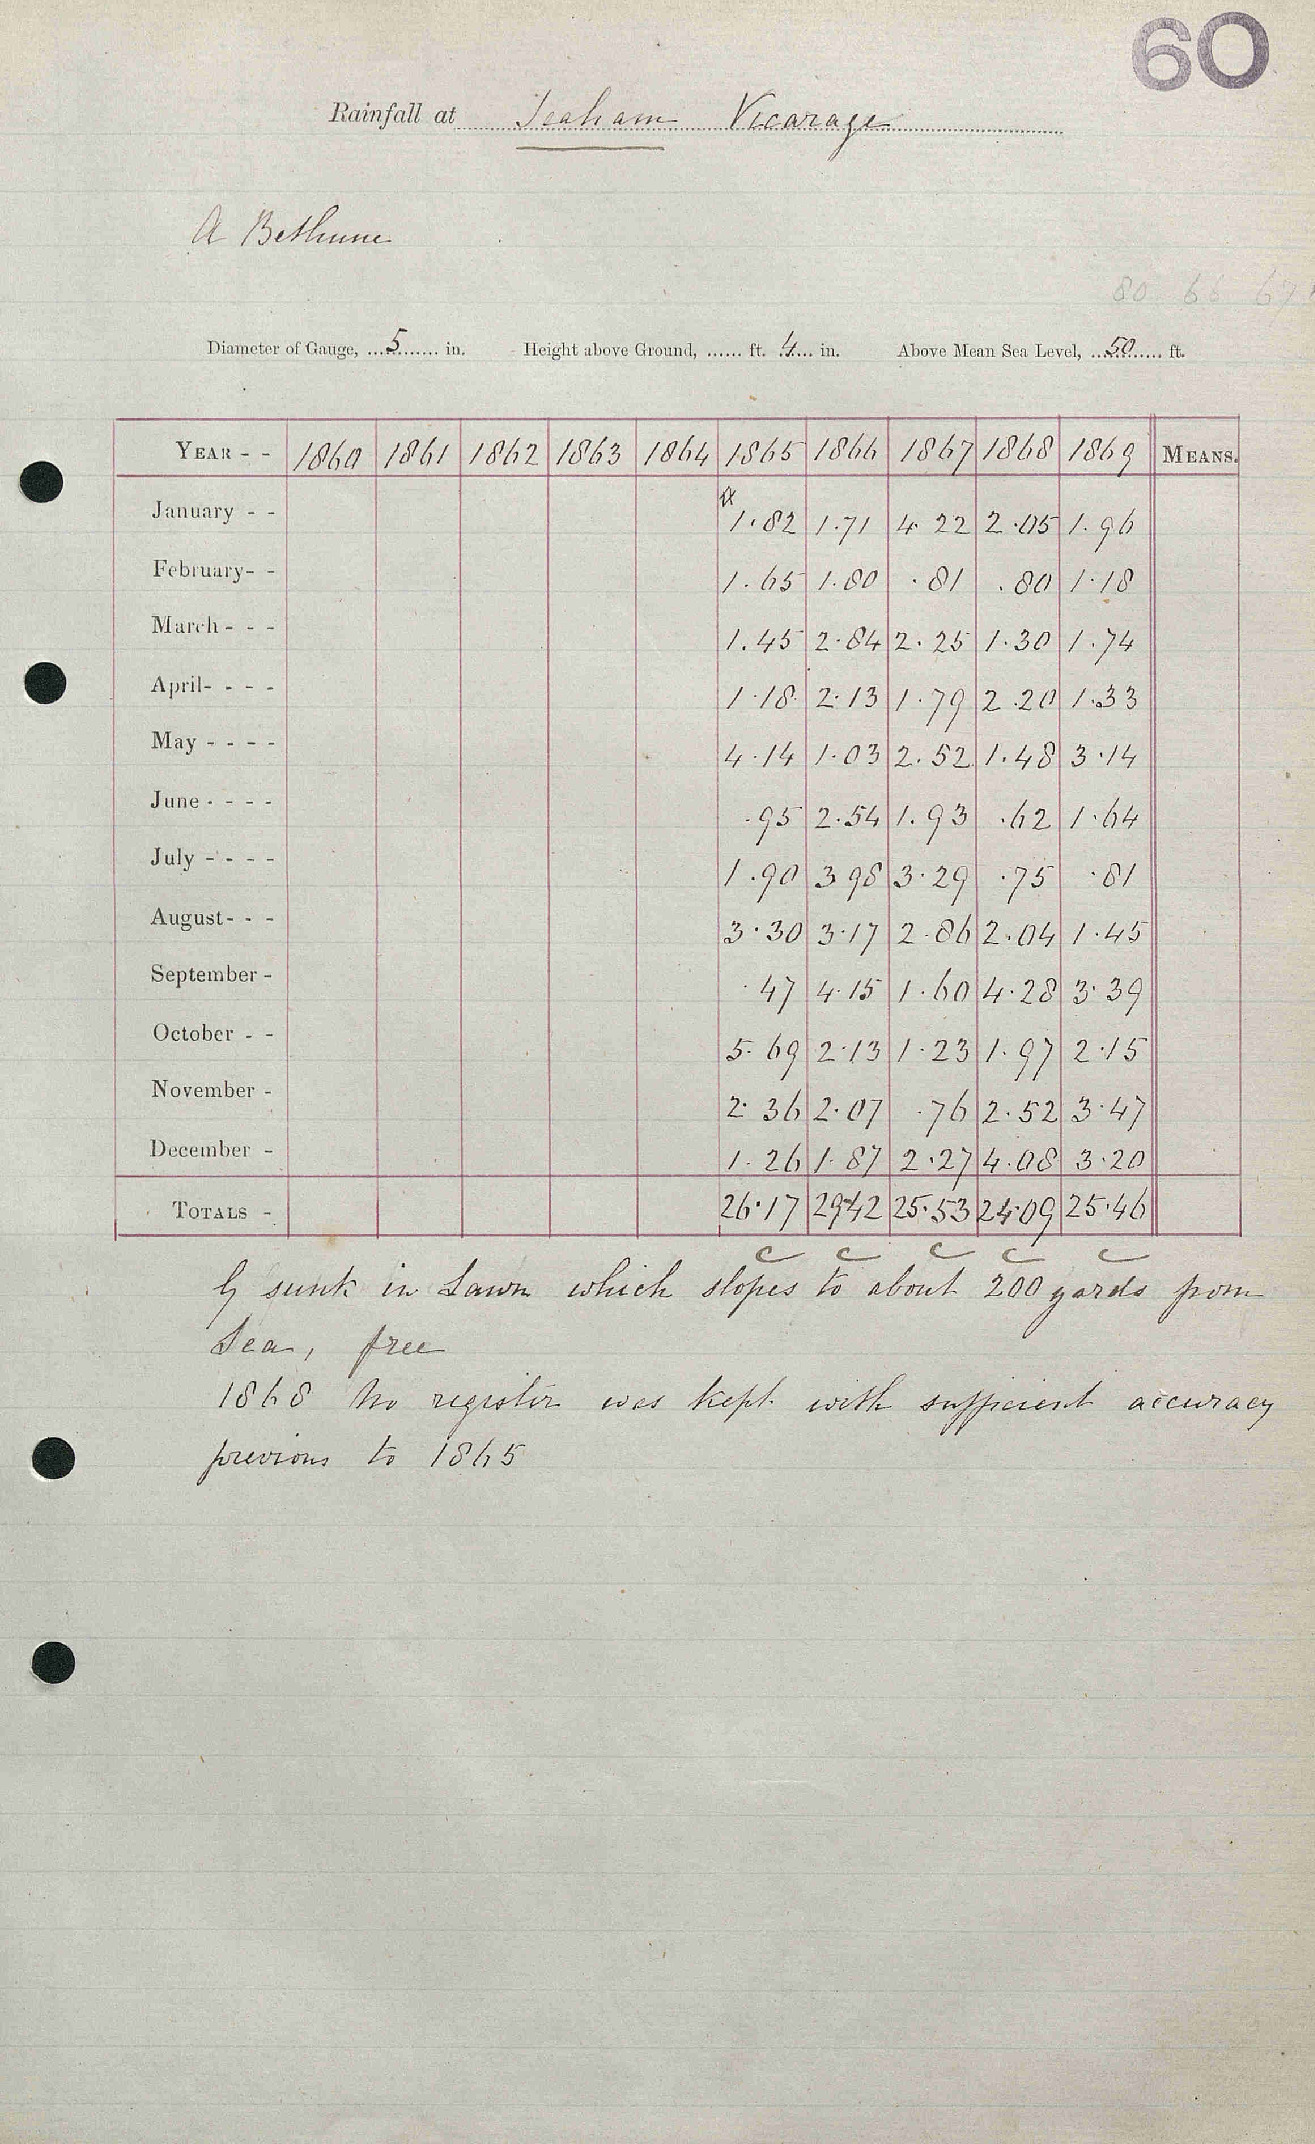 60
Rainfall at Seaham Vicarage
A Bethune
80 66 67
Diameter of Gauge, ...5... in. Height above Ground, ...... ft. 4 in. Above Mean Sea Level, ...50... ft.
YEAR - - 1860 1861 1862 1863 1864 1865 1866 1867 1868 1869 MEANS.
January - - 1.82 1.71 4 22 2.05 1.96
February- - 1.65 1.80 .81 .80 1.18
March - - - 1.45 2.84 2.25 1.30 1.74
April- - - - 1.18 2.13 1.79 2.20 1.33
May - - - - 4.14 1.03 2.52 1.48 3.14
June - - - - .95 2.54 1.93 .62 1.64
July - - - - 1.90 3 98 3.29 .75 .81
August- - - 3.30 3.17 2.86 2.04 1.45
September - .47 4.15 1.60 4.28 3.39
October - - 5.69 2.13 1.23 1.97 2.15
November - 2.36 2.07 .76 2.52 3.47
December - 1.26 1.87 2.27 4.08 3.20
TOTALS - 26.17 29.42 25.53 24.09 25.46
G sunk in Lawn which slopes to about 200 yards from
Sea, free
1868 No register was kept with sufficient accuracy
previous to 1865